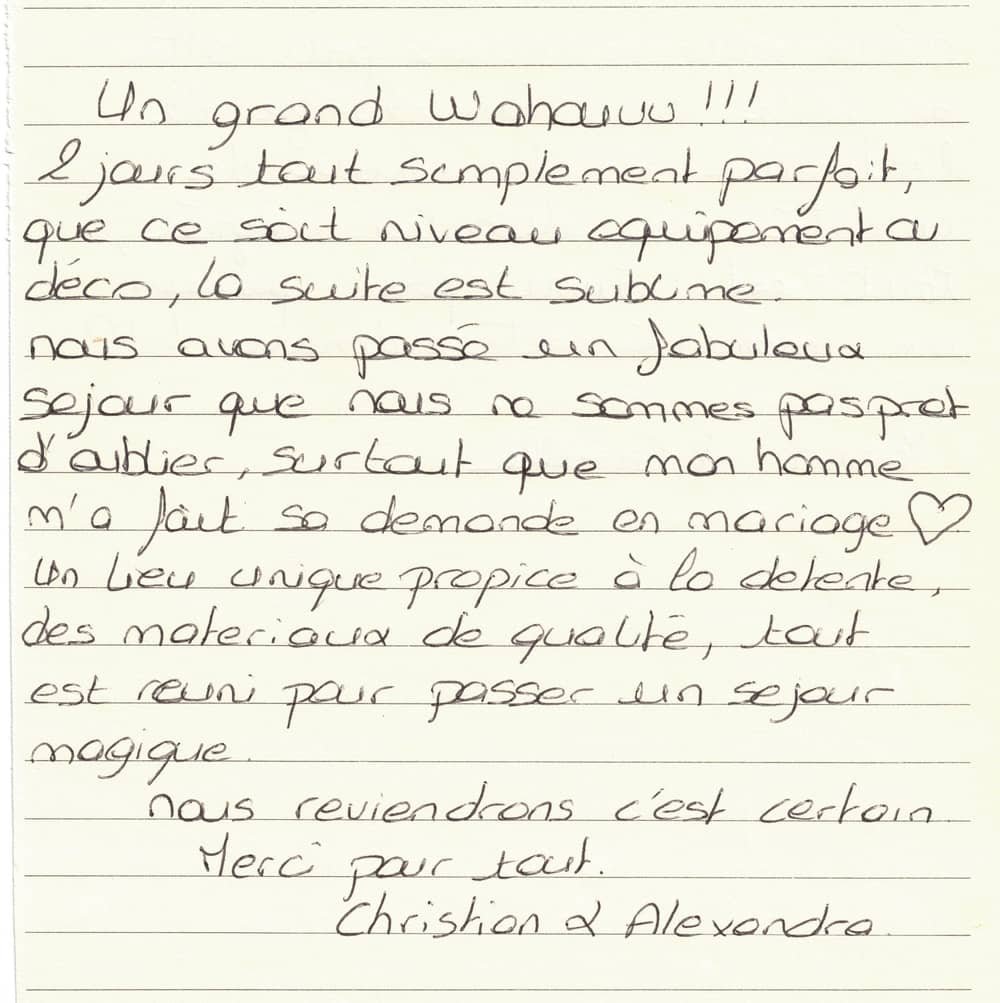 Un grand Wahouuu !!!
2 jours tout simplement parfait,
que ce soit niveau equipement ou
déco, la suite est sublime.
nous avons passé un fabuleux
sejour que nous ne sommes pas pret
d'oublier, surtout que mon homme
m'a fait sa demande en mariage ♡
Un lieu unique propice à la detente,
des materiaux de qualité, tout
est reuni pour passer un sejour
magique.
nous reviendrons c'est certain
Merci pour tout.
Christian & Alexandra.